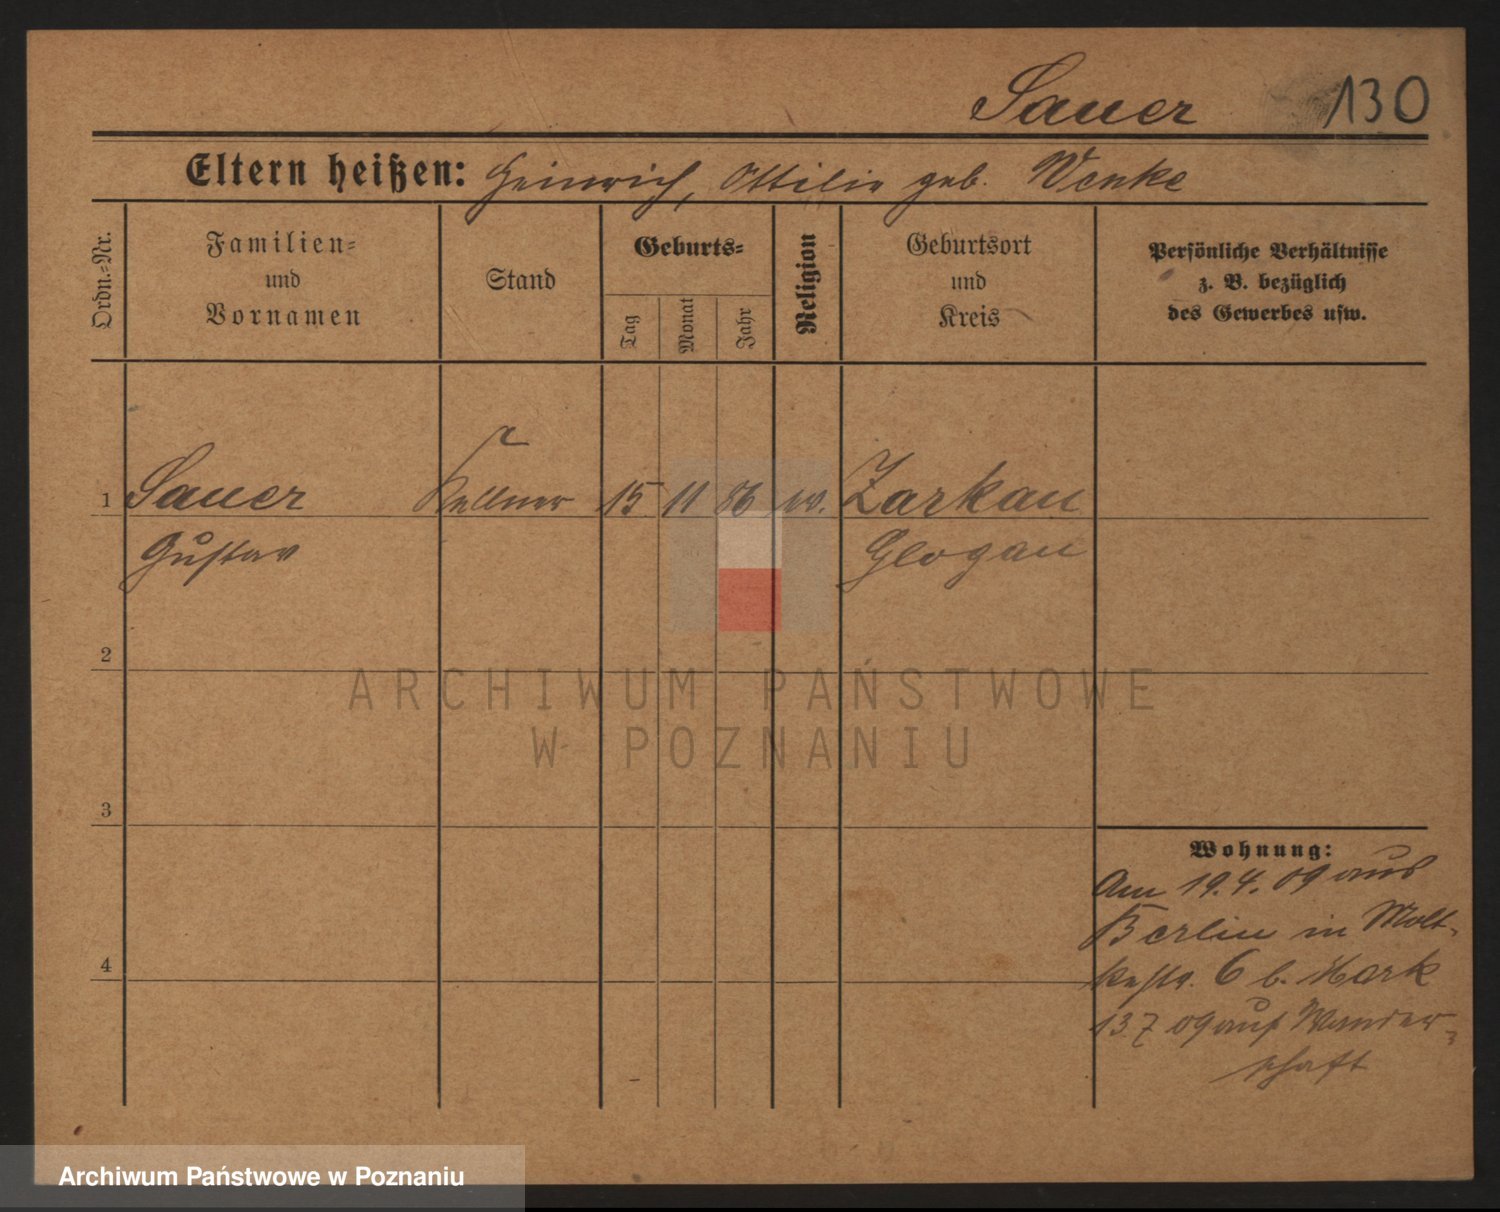 Sauer 130
Eltern heißen: Heinrich, Ottilie geb. Wenke
Ordn.=Nr.
Familien=
und
Vornamen
Stand
Geburts=
Tag
Monat
Jahr
Religion
Geburtsort
und
Kreis
Persönliche Verhältnisse
z. B. bezüglich
des Gewerbes usw.
1 Sauer Kellner 15 11 86 ev. Zarkau
Gustav Glogau
2
ARCHIWUM PAŃSTWOWE
W POZNANIU
3
Wohnung:
Am 19.4.09 aus
Berlin in Molt-
kestr. 6 b. Mark
4
13.7 09 auf Wander-
schaft
Archiwum Państwowe w Poznaniu